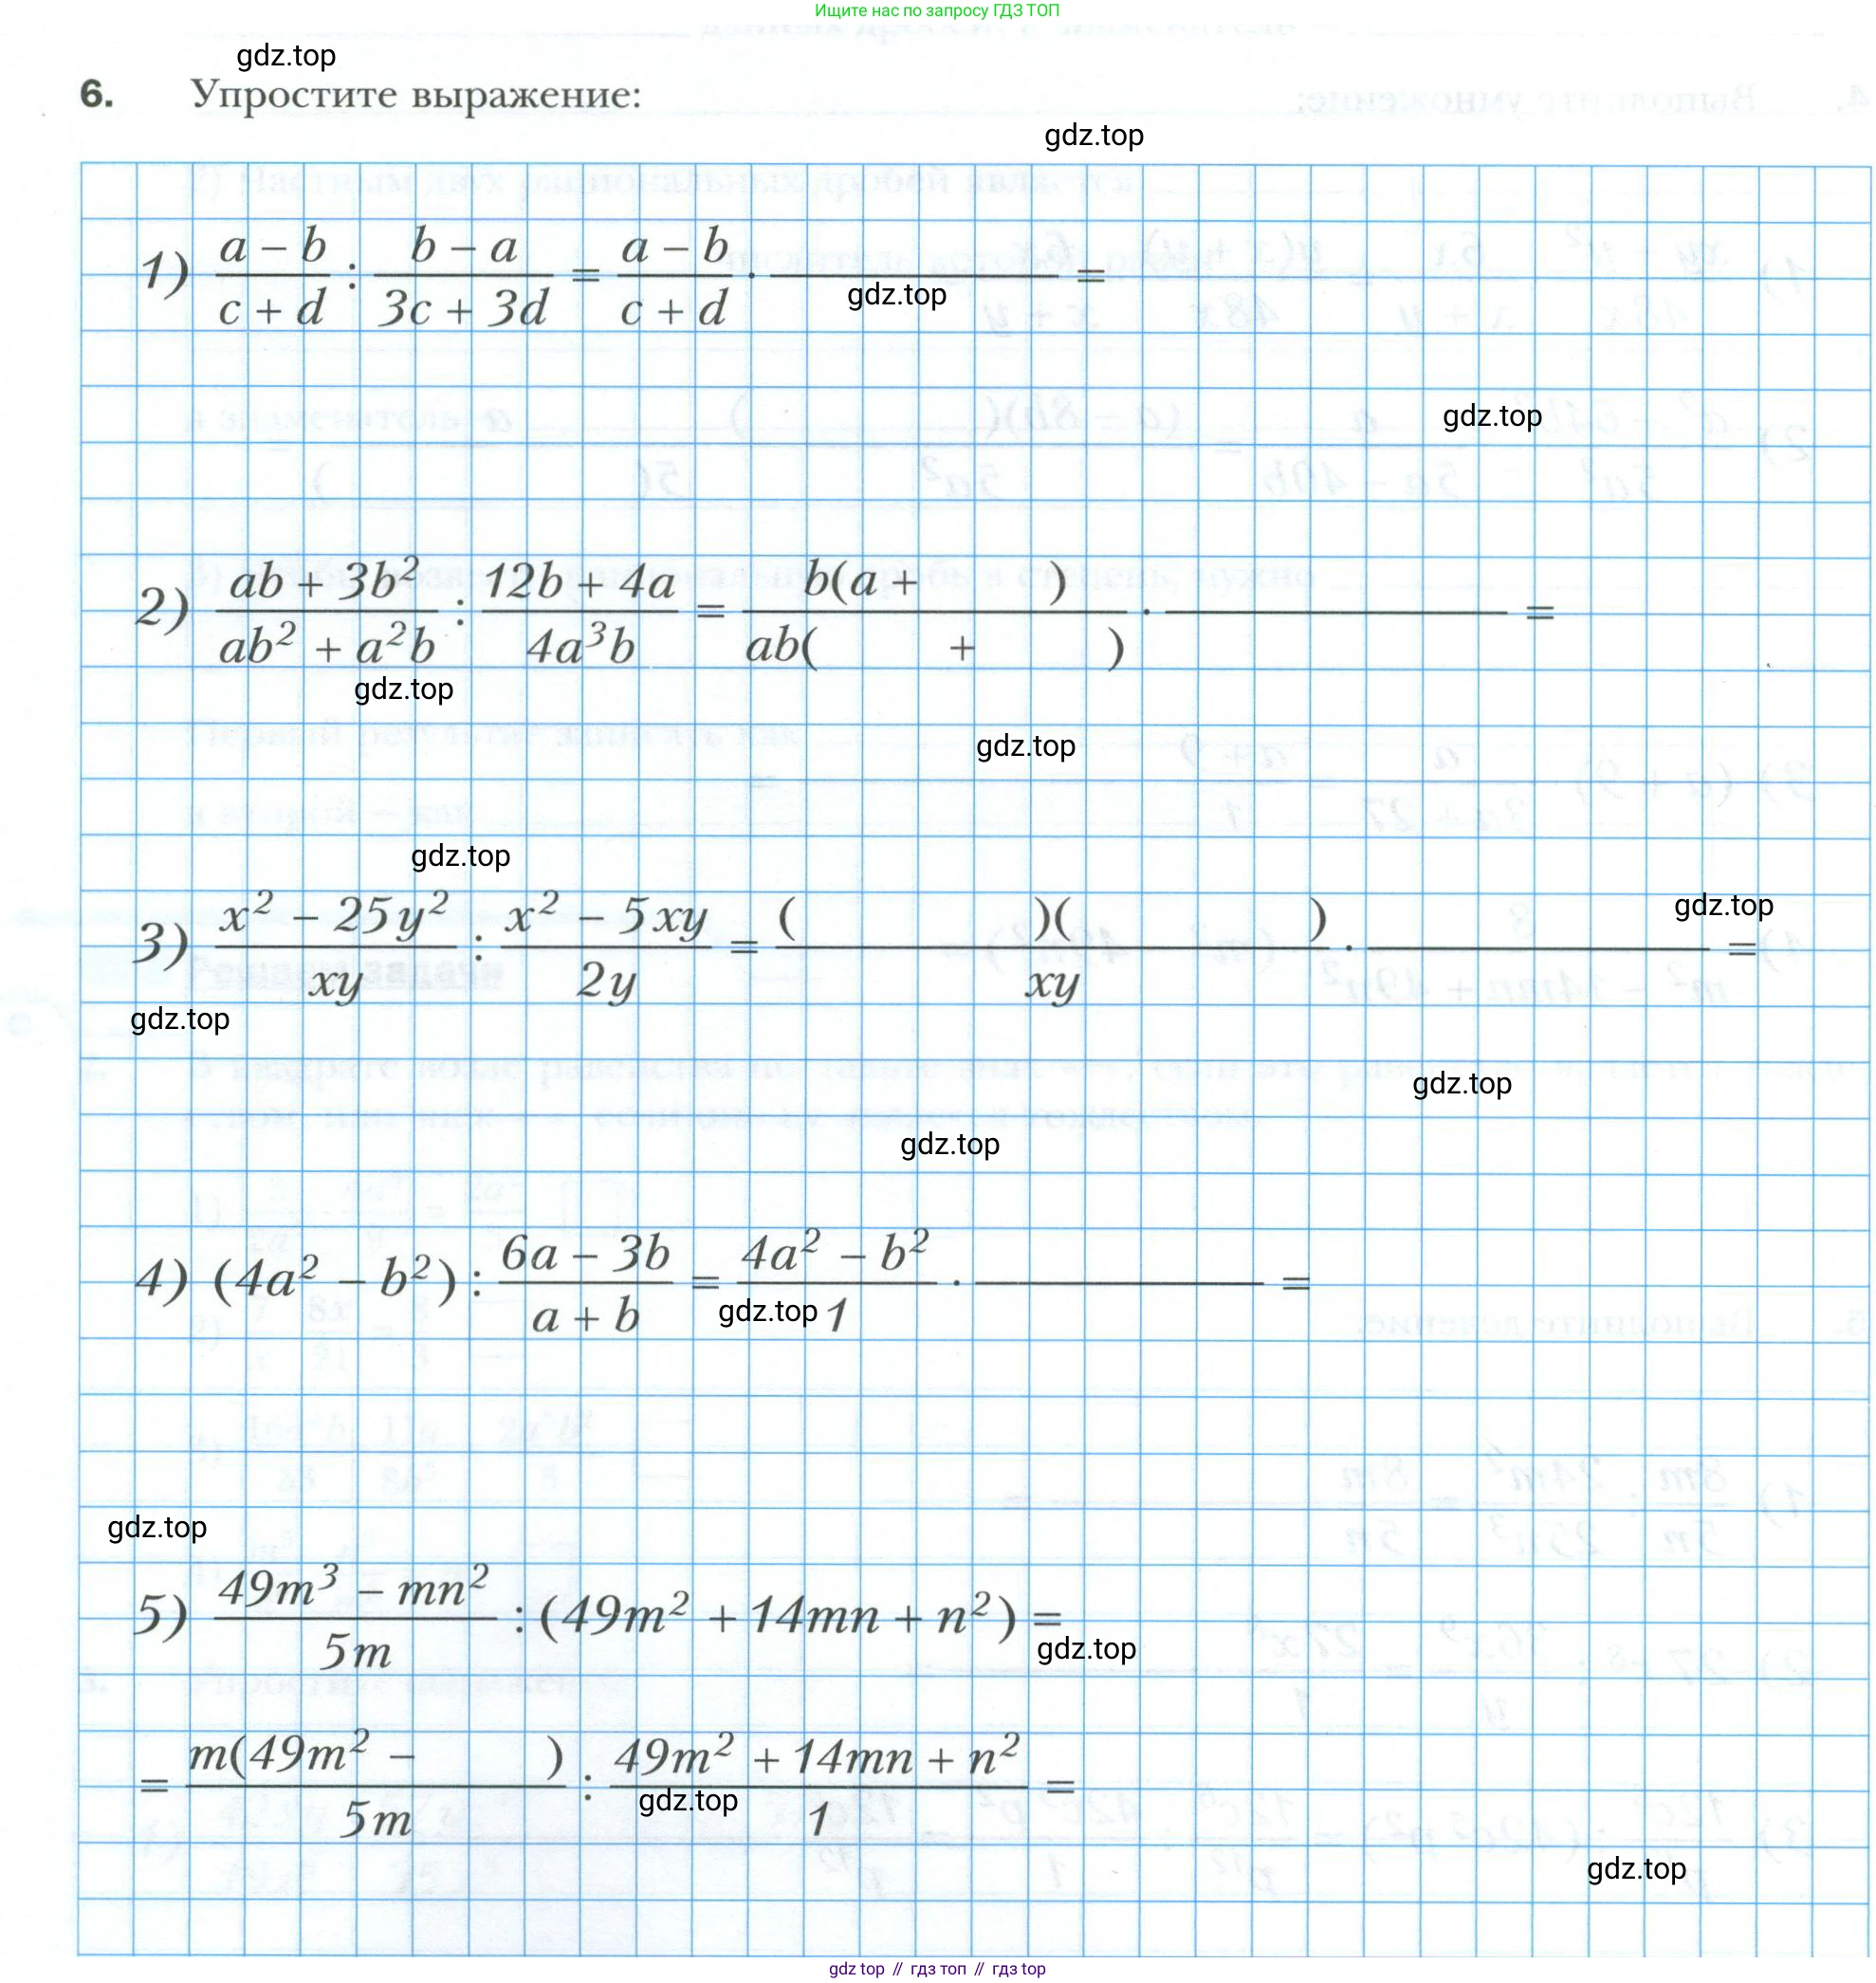 Ищите нас по запросу ГДЗ ТОП
gdz.top
6. Упростите выражение:
gdz.top
1) (a − b)/(c + d) : (b − a)/(3c + 3d) = (a − b)/(c + d) · ____ =
gdz.top
gdz.top
2) (ab + 3b²)/(ab² + a²b) : (12b + 4a)/(4a³b) = b(a + )/ab( + ) · ____ =
gdz.top
gdz.top
gdz.top
gdz.top
3) (x² − 25y²)/(xy) : (x² − 5xy)/(2y) = ( )( )/xy · ____ =
gdz.top
gdz.top
gdz.top
4) (4a² − b²) : (6a − 3b)/(a + b) = (4a² − b²)/1 · ____ =
gdz.top
gdz.top
5) (49m³ − mn²)/(5m) : (49m² + 14mn + n²) =
gdz.top
= m(49m² − )/5m : (49m² + 14mn + n²)/1 =
gdz.top
gdz.top
gdz top // гдз топ // гдз top